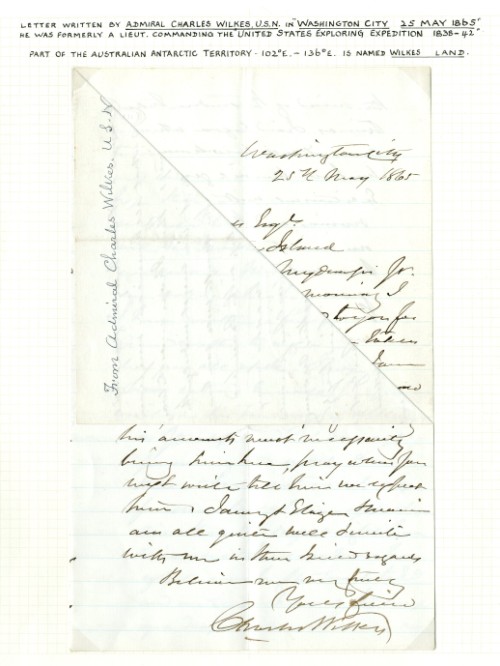 LETTER WRITTEN BY ADMIRAL CHARLES WILKES, U.S.N. IN "WASHINGTON CITY 25 MAY 1865"
HE WAS FORMERLY A LIEUT. COMMANDING THE "UNITED STATES EXPLORING EXPEDITION 1838-42"
PART OF THE AUSTRALIAN ANTARCTIC TERRITORY - 102°E. - 136°E. IS NAMED WILKES LAND.
From Admiral Charles Wilkes. U.S.N
Washington City
25th May 1865
Esqr.
Island
My dear Jr.
morning I
to you for
taken
his accounts must necessarily
bring him here, pray when you
next write tell him we expect
him. Janey & Eliza
are all quite well & unite
with me in their kind regards
Believe me very truly
Your friend
Charles Wilkes